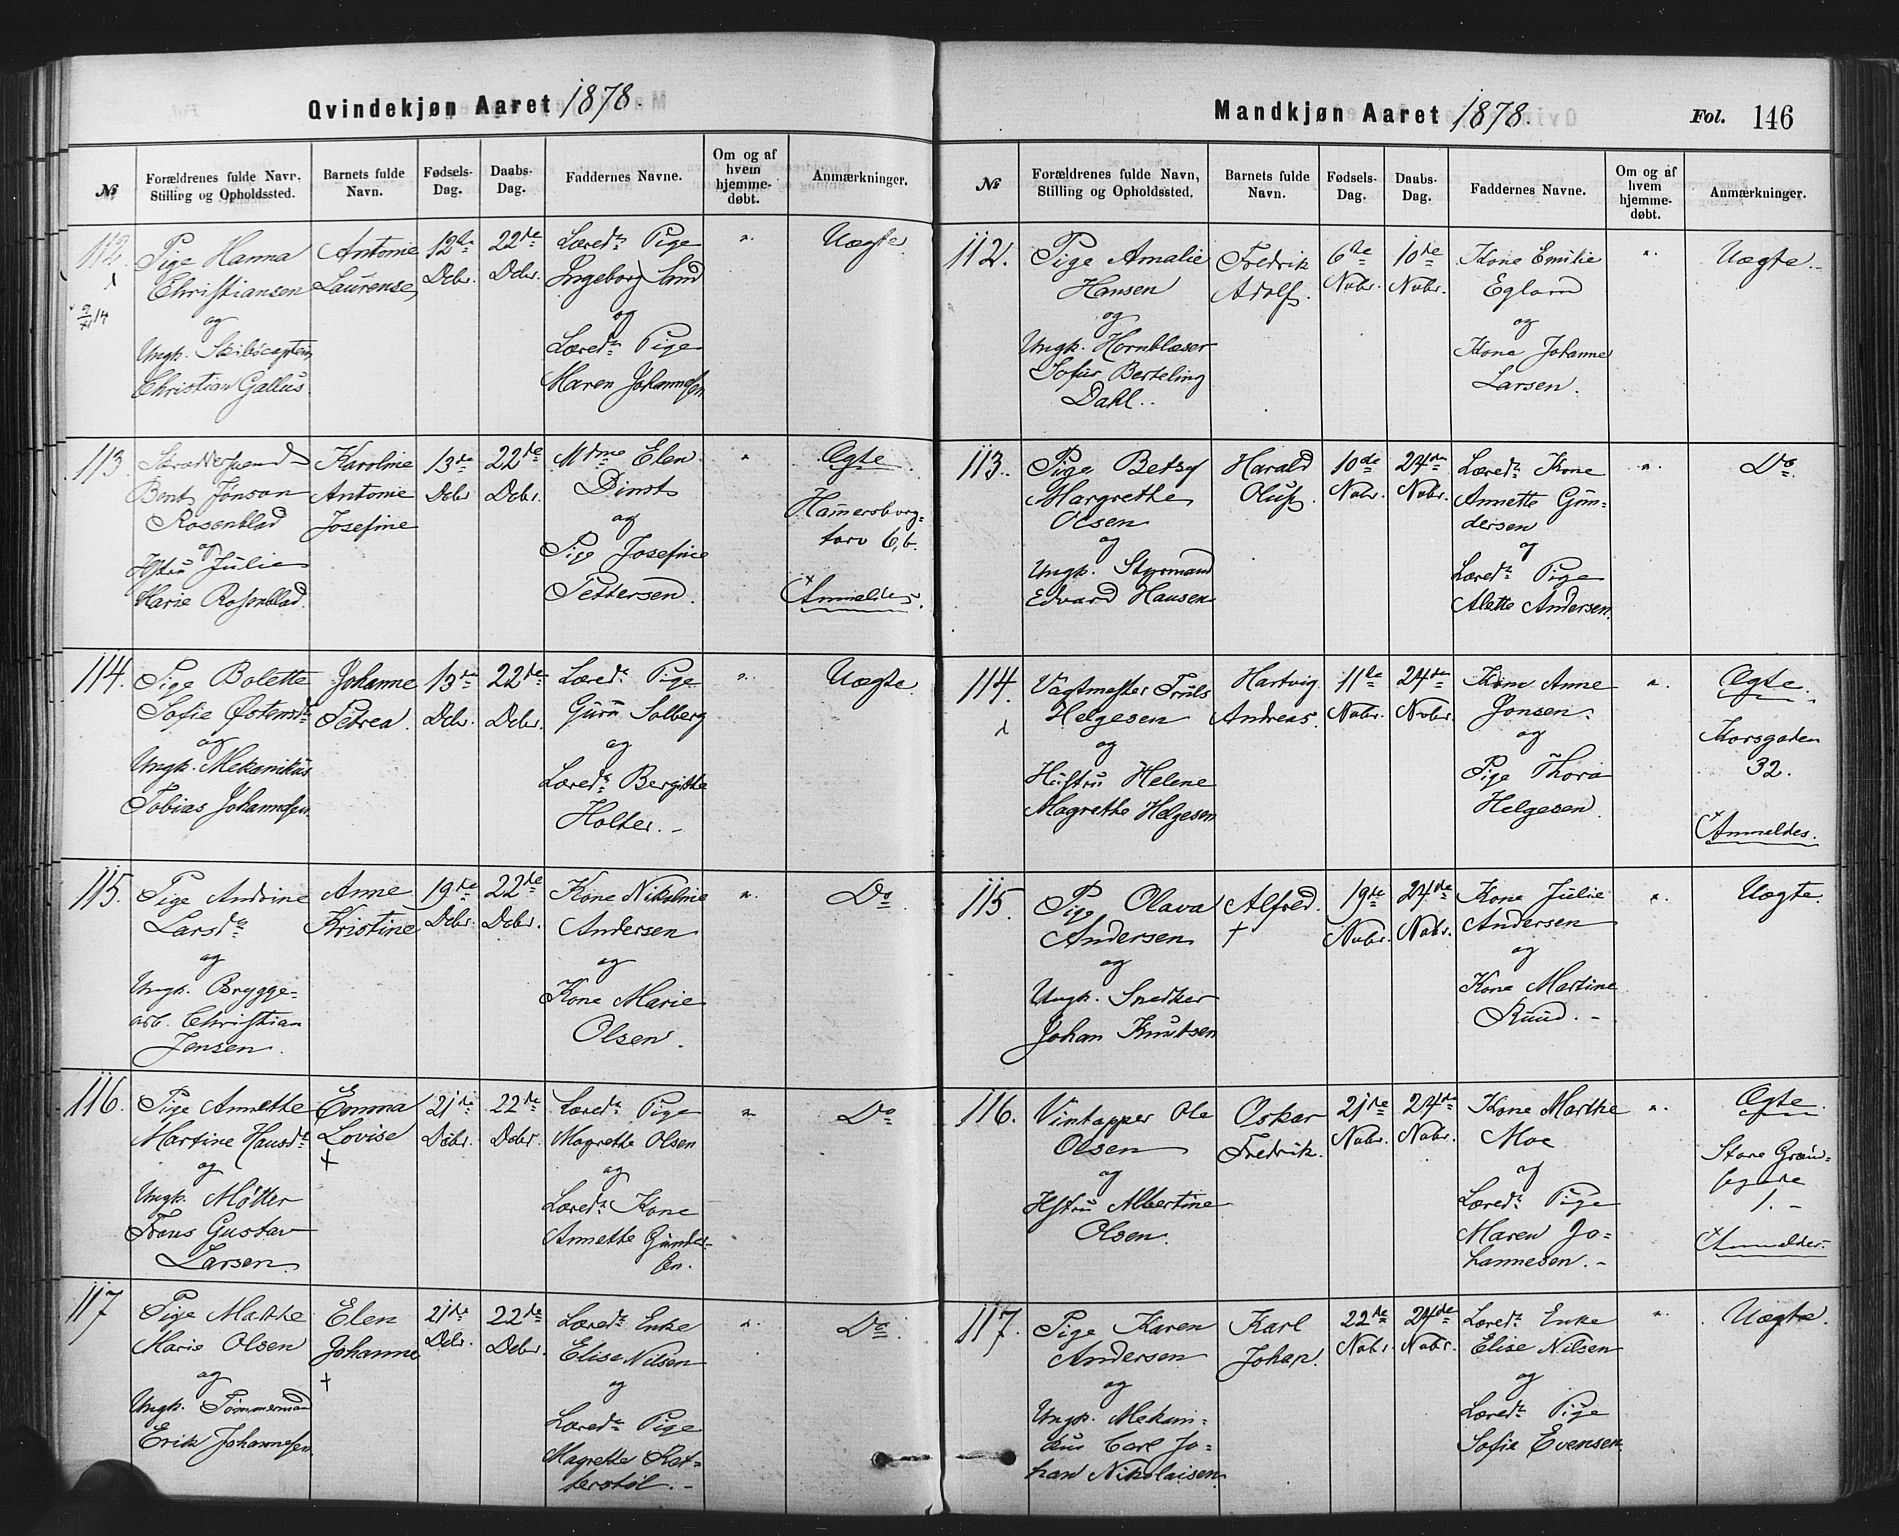 Qvindekjøn Aaret 1878.
№
Forældrenes fulde Navn,
Stilling og Opholdssted.
Barnets fulde
Navn.
Fødsels-
Dag.
Daabs-
Dag.
Faddernes Navne.
Om og af
hvem
hjemme-
døbt.
Anmærkninger.
112.
Pige Hanna
Christiansen
og
Ungk. Skibscaptein
Christian Gallus.
Antonie
Laurense
12te
Dcbr.
22de
Dcbr.
Læred: Pige
Ingeborg Lund
og
Læred: Pige
Maren Johannesen
"
Uægte.
113.
Skræddersvend
Bent Jonson
Rosenblad
og
Hstru Julie
Marie Rosenblad.
Karoline
Antonie
Josefine
13de
Dcbr
22de
Dcbr.
Mdme Elen
og
Pige Josefine
Pettersen.
"
Ægte.
Hamersborg=
torv 6,b.
Anmeldes.
114.
Pige Bolette
Sofie Østensdr
og
Ungk. Mekanikus
Tobias Johannesen
Johanne
Petrea.
13de
Dcbr.
22de
Dcbr.
Læred: Pige
Guru Solberg
og
Læred: Bergitte
Holter. –
"
Uægte.
115.
Pige Andrine
Larsdr
og
Ungk. Brygge=
arb. Christian
Jensen.
Anne
Kristine
19de
Dcbr.
22de
Dcbr.
Kone Nikoline
Andersen
og
Kone Marie
Olsen.
"
Do
116.
Pige Annethe
Martine Hansdr
og
Ungk. Møller
Frans Gustav
Larsen.
Emma
Lovise
+
21de
Dcbr.
22de
Dcbr.
Læred: Pige
Magrethe Olsen
og
Læred: Kone
Annette Gunder-
sen.
"
Do
117
Pige Mathe
Marie Olsen
og
Ungk. Tømmermand
Erik Johannesen.
Elen
Johanne
+
21de
Dcbr.
22de
Dcbr.
Læred: Enke
Elise Nilsen
og
Læred: Pige
Magrethe Sæt-
terstøl. –
"
Do.
Mandkjøn Aaret 1878.
Fol. 146
№
Forældrenes fulde Navn,
Stilling og Opholdssted.
Barnets fulde
Navn.
Fødsels-
Dag.
Daabs-
Dag.
Faddernes Navne.
Om og af
hvem
hjemme-
døbt.
Anmærkninger.
112.
Pige Amalie
Hansen
og
Ungk. Hornblæser
Sofus Berteling
Dahl.
Fredrik
Adolf.
6te
Nvbr.
10de
Nvbr.
Kone Emilie
og
Kone Johanne
Larsen.
"
Uægte.
113.
Pige Betsy
Margrethe
Olsen
og
Ungk. Styrmand
Edvard Hansen
Harald
Oluf.
10de
Nvbr.
24de
Nvbr.
Læred: Kone
Annette Gun-
dersen
og
Læred: Pige
Alette Andersen.
"
Do
114.
Vagtmester Truls
Helgesen
og
Hustru Helene
Magrethe Helgesen
Hartvig
Andreas.
11te
Nvbr.
24de
Nvbr.
Kone Anne
Jonsen.
og
Pige Thora
Helgesen.
"
Ægte.
Korsgaden
32.
Anmeldes.
115.
Pige Olava
Andersen
og
Ungk. Snedker
Johan Knutsen
Alfred.
+
19de
Nvbr.
24de
Nvbr.
Kone Julie
Andersen
og
Kone Martine
Ruud. –
"
Uægte.
116.
Vintapper Ole
Olsen
og
Hstru Albertine
Olsen.
Oskar
Fredrik.
21de
Nvbr.
24de
Nvbr.
Kone Marthe
Moe
og
Læred: Pige
Maren Jo-
hannesen. –
"
Ægte.
Store Græn-
1. –
Anmeldes.
117.
Pige Karen
Andersen
og
Ungk. Mekani-
kus Carl Jo-
han Nikolaisen
Karl
Johan.
22de
Nvbr.
24de
Nvbr.
Læred: Enke
Elise Nilsen
og
Læred: Pige
Sofie Evensen
"
Uægte.